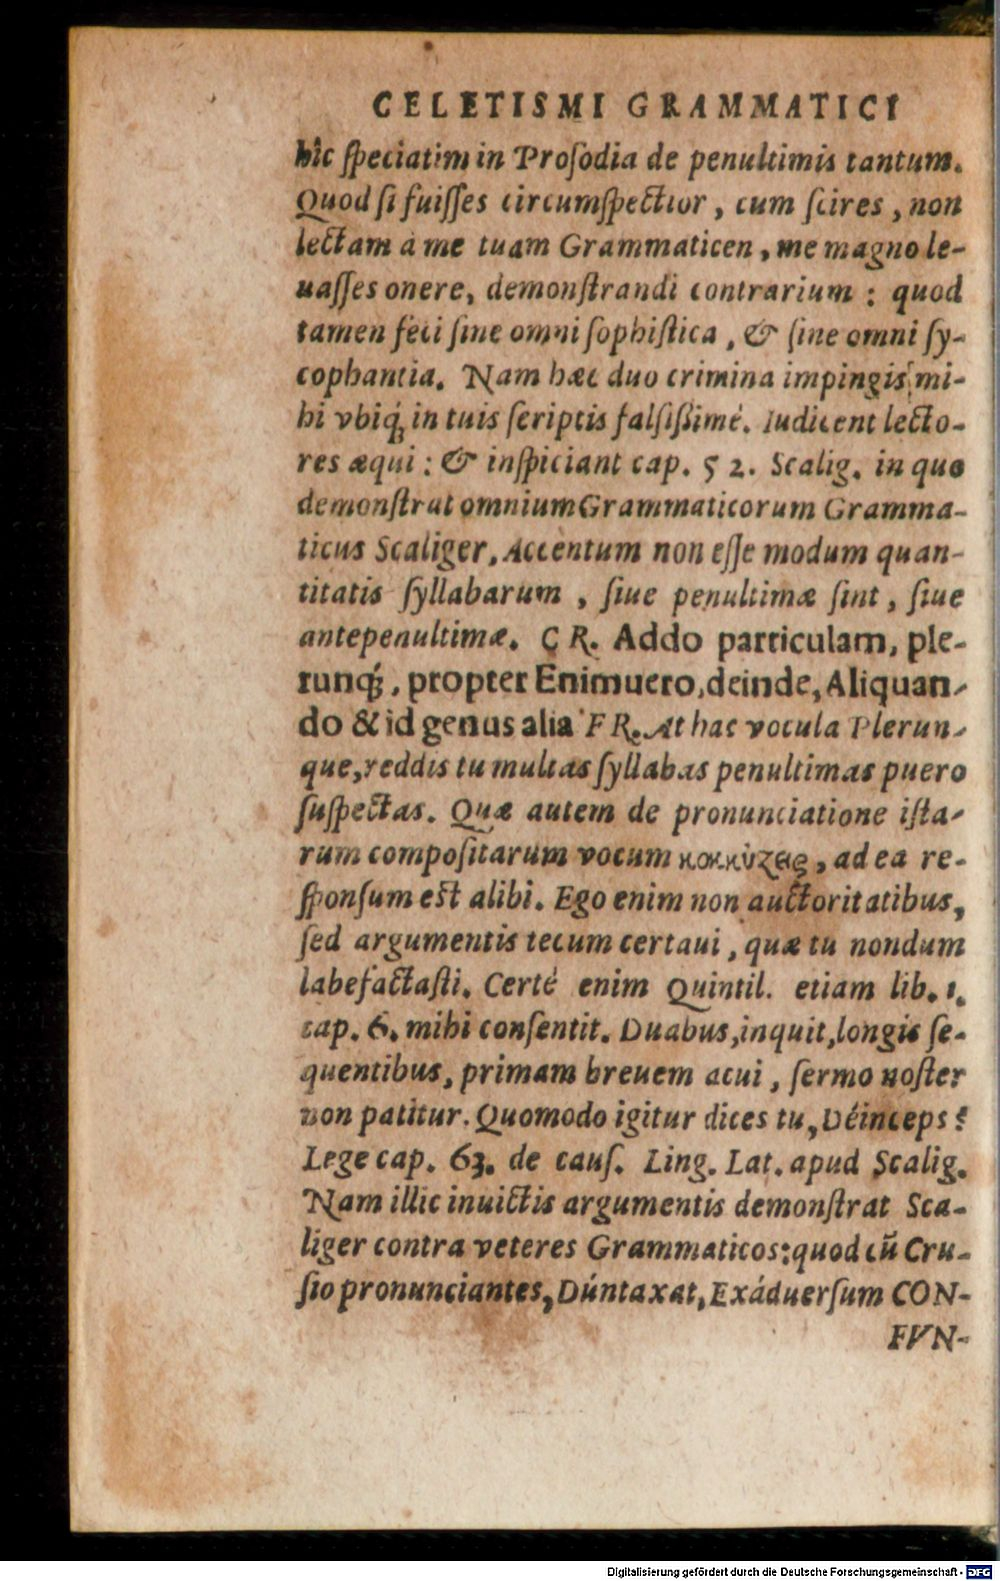 CELETISMI GRAMMATICI
hîc ſpeciatim in Proſodia de penultimis tantum.
Quod ſi fuiſſes circumſpectior, cum ſcires, non
lectam à me tuam Grammaticen, me magno le-
uaſſes onere, demonſtrandi contrarium : quod
tamen feci ſine omni ſophiſtica, & ſine omni ſy-
cophantia. Nam hæc duo crimina impingis mi-
hi vbiq́; in tuis ſcriptis falſiſsimè. Iudicent lecto-
res æqui : & inſpiciant cap. 52. Scalig. in quo
demonſtrat omnium Grammaticorum Gramma-
ticus Scaliger, Accentum non eſſe modum quan-
titatis ſyllabarum, ſiue penultimæ ſint, ſiue
antepenultimæ. CR. Addo particulam, ple-
runq́;, propter Enimuero, deinde, Aliquan-
do & id genus alia FR. At hac vocula Plerun-
que, reddis tu multas ſyllabas penultimas puero
ſuſpectas. Quæ autem de pronunciatione iſta-
rum compoſitarum vocum κοκκύζεις, ad ea re-
ſponſum eſt alibi. Ego enim non auctoritatibus,
ſed argumentis tecum certaui, quæ tu nondum
labefactaſti. Certè enim Quintil. etiam lib. 1.
cap. 6. mihi conſentit. Duabus, inquit, longis ſe-
quentibus, primam breuem acui, ſermo noſter
non patitur. Quomodo igitur dices tu, Déinceps?
Lege cap. 63. de cauſ. Ling. Lat. apud Scalig.
Nam illic inuictis argumentis demonſtrat Sca-
liger contra veteres Grammaticos: quod cū Cru-
ſio pronunciantes, Dúntaxat, Exáduerſum CON-
FVN-
Digitalisierung gefördert durch die Deutsche Forschungsgemeinschaft - DFG